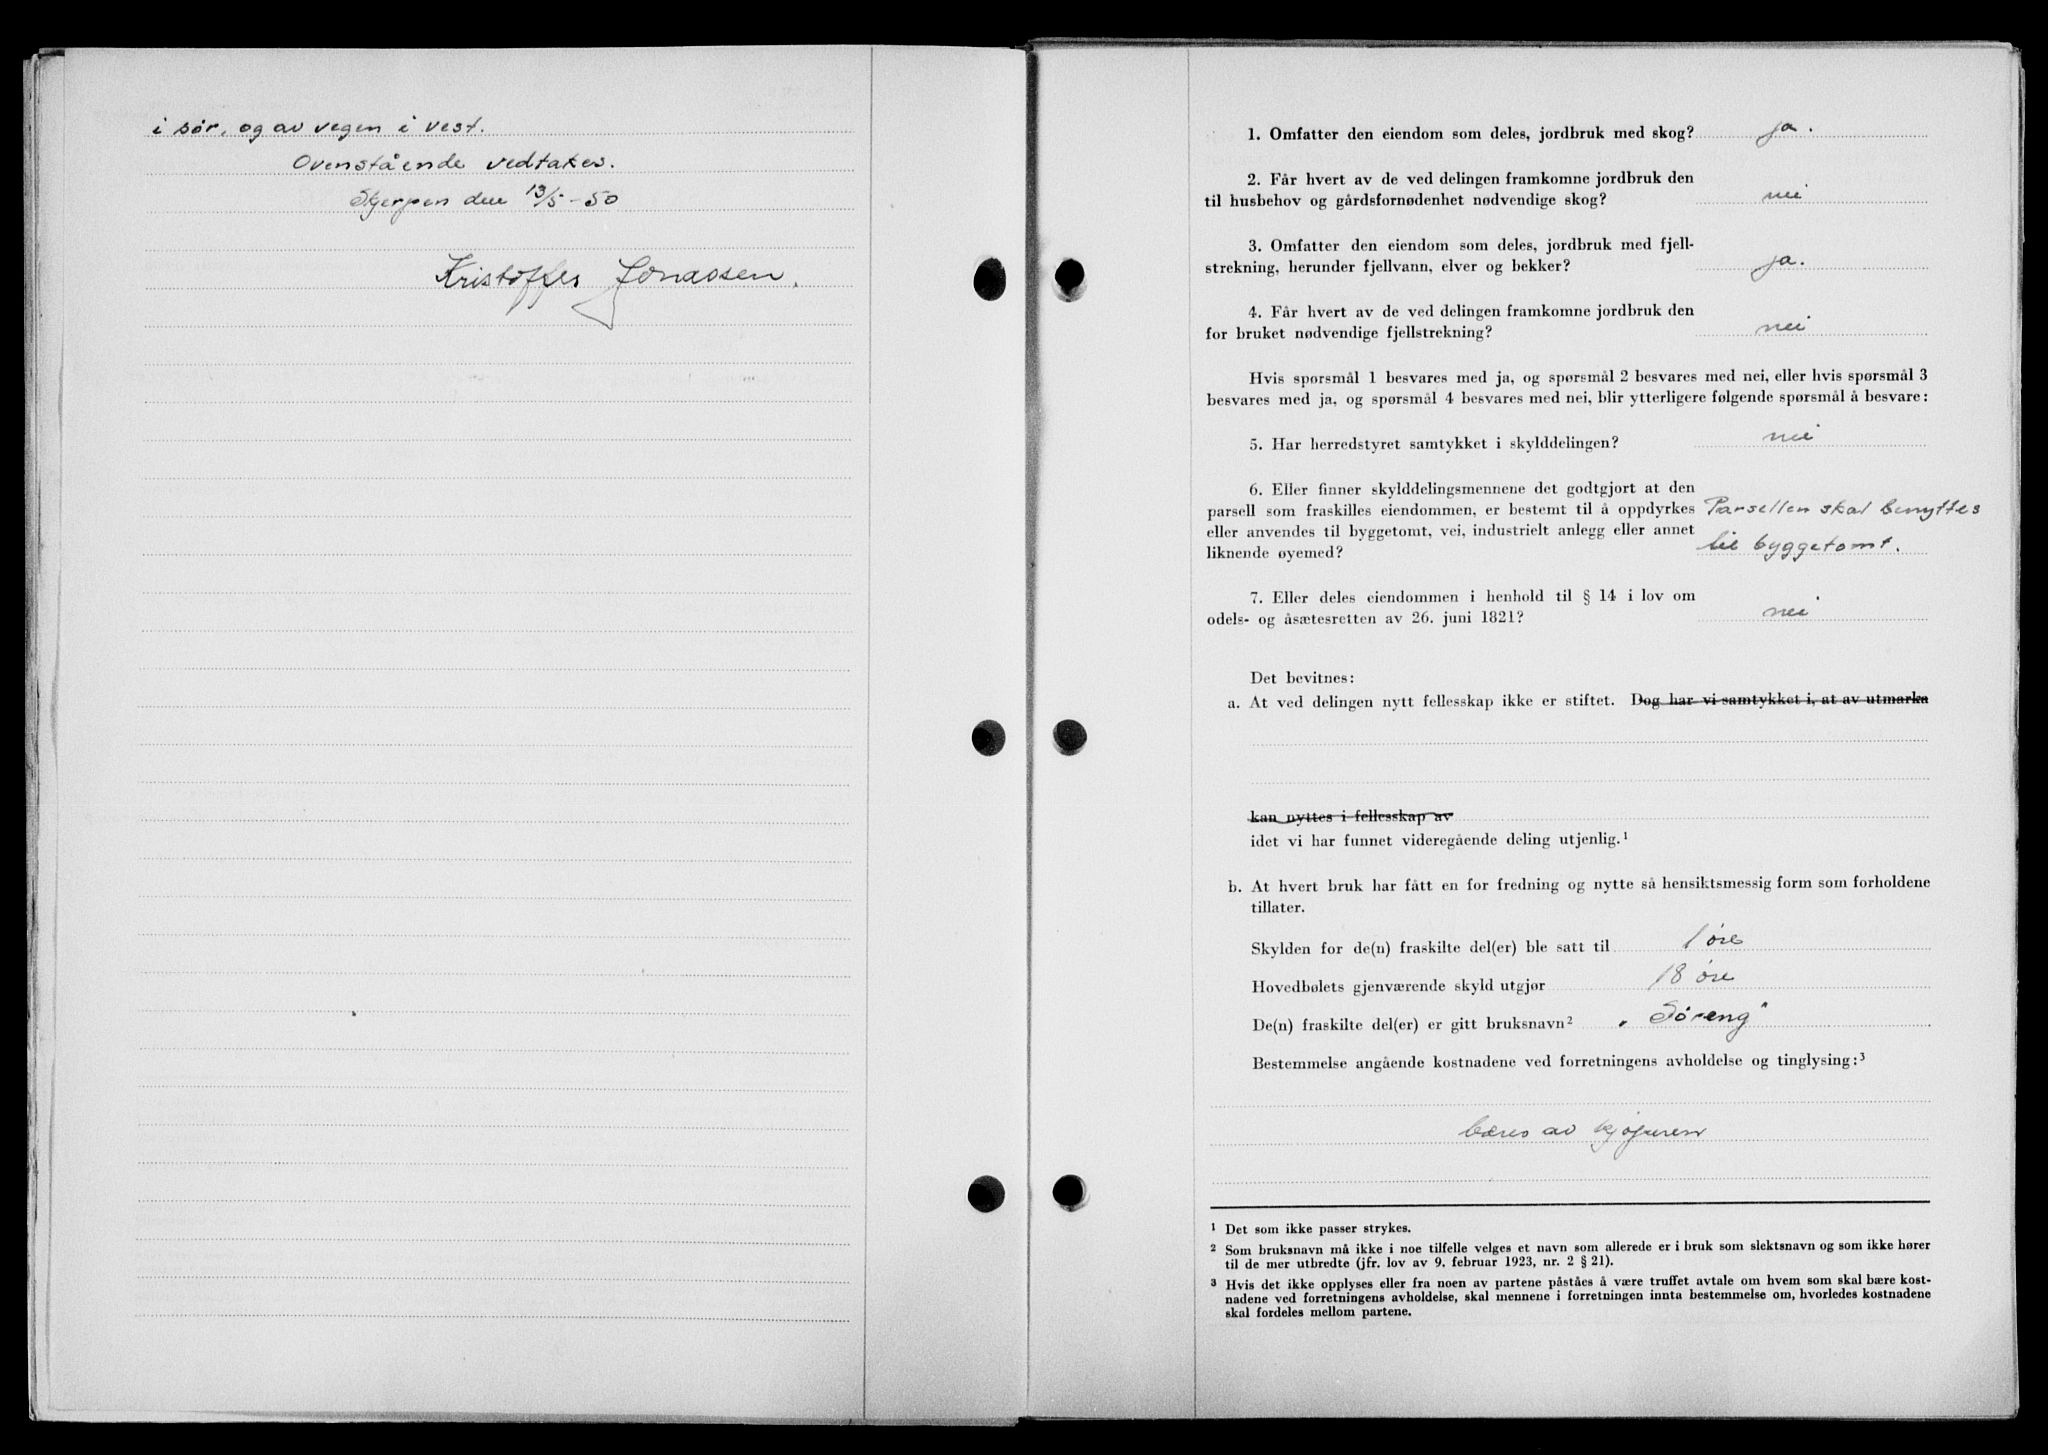 i sør, og av vegen i vest.
Ovenstående vedtakes.
Skjerpen den 13/5-50
Kristoffer Jonassen.
1. Omfatter den eiendom som deles, jordbruk med skog? ja.
2. Får hvert av de ved delingen framkomne jordbruk den
til husbehov og gårdsfornødenhet nødvendige skog? nei
3. Omfatter den eiendom som deles, jordbruk med fjell-
strekning, herunder fjellvann, elver og bekker? ja.
4. Får hvert av de ved delingen framkomne jordbruk den
for bruket nødvendige fjellstrekning? nei
Hvis spørsmål 1 besvares med ja, og spørsmål 2 besvares med nei, eller hvis spørsmål 3
besvares med ja, og spørsmål 4 besvares med nei, blir ytterligere følgende spørsmål å besvare:
5. Har herredstyret samtykket i skylddelingen? nei
6. Eller finner skylddelingsmennene det godtgjort at den
parsell som fraskilles eiendommen, er bestemt til å oppdyrkes Parsellen skal benyttes
eller anvendes til byggetomt, vei, industrielt anlegg eller annet
liknende øyemed? til byggetomt.
7. Eller deles eiendommen i henhold til § 14 i lov om
odels- og åsætesretten av 26. juni 1821? nei
Det bevitnes:
a. At ved delingen nytt fellesskap ikke er stiftet. Dog har vi samtykket i, at av utmarka
kan nyttes i fellesskap av
idet vi har funnet videregående deling utjenlig.¹
b. At hvert bruk har fått en for fredning og nytte så hensiktsmessig form som forholdene
tillater.
Skylden for de(n) fraskilte del(er) ble satt til 1 øre
Hovedbølets gjenværende skyld utgjør 18 øre
De(n) fraskilte del(er) er gitt bruksnavn² "Søreng"
Bestemmelse angående kostnadene ved forretningens avholdelse og tinglysing:³
bæres av kjøperen
¹ Det som ikke passer strykes.
² Som bruksnavn må ikke i noe tilfelle velges et navn som allerede er i bruk som slektsnavn og som ikke hører
til de mer utbredte (jfr. lov av 9. februar 1923, nr. 2 § 21).
³ Hvis det ikke opplyses eller fra noen av partene påståes å være truffet avtale om hvem som skal bære kost-
nadene ved forretningens avholdelse, skal mennene i forretningen innta bestemmelse om, hvorledes kostnadene
skal fordeles mellom partene.